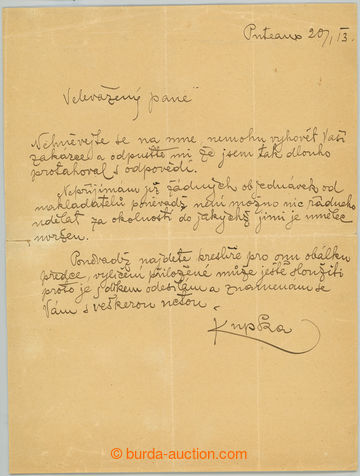 Puteaux 20/I 13.
Velevážený pane
Nehněvejte se na mne, nemohu vyhovět Vaší
zakázce a odpusťte mi že jsem tak dlouho
protahoval s odpovědí.
Nepřijímám již žádných objednávek od
nakladatelů poněvadž není možno nic řádného
udělat za okolností do jakýchž jimi je umělec
uvržen.
Poněvadž najdete kresbíře pro onu obálku
přece, vylíčení přiložené může ještě sloužiti
proto je s díkem odesílám a znamenám se
Vám s veškerou úctou
Kupka
burda-auction.com